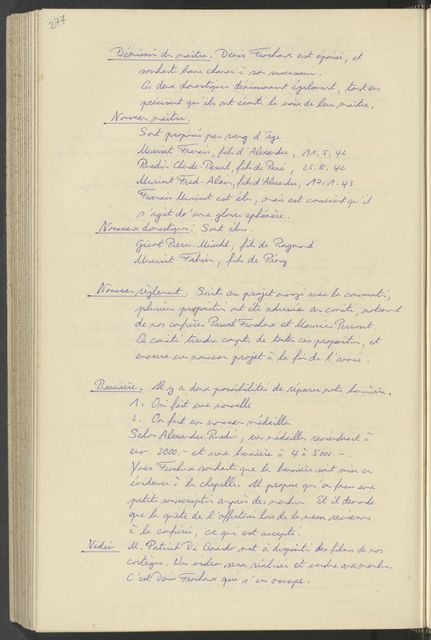 277
Démission du maître. Denis Frochaux est épuisé, et
souhaite bonne chance à son successeur.
Les deux domestiques démissionnent également, tout en
précisant qu'ils ont écouté la voix de leur maître.
Nouveau maître.
Sont proposés par rang d'âge
Muriset Francis, fils d'Alexandre, 11.5.42
Ruedin Claude-Pascal, fils de René, 25.8.42
Muriset Fred-Alain, fils d'Alexandre, 17.1.43
Francis Muriset est élu, mais est conscient qu'il
s'agit d'une gloire éphémère.
Nouveaux domestiques: Sont élus.
Girod Pierre-Michel, fils de Raymond
Muriset Fabien, fils de
Nouveau règlement. Suite au projet envoyé avec la convocation,
plusieurs propositions ont été adressées au comité, notamment
de nos confrères Pascal Frochaux et Maurice Perront.
Le comité tiendra compte de toutes ces propositions, et
enverra un nouveau projet à la fin de l'année.
Bannière. Il y a deux possibilités de réparer notre bannière.
1. On fait une nouvelle
2. On fait un nouveau médaillon
Selon Alexandre Ruedin, un médaillon reviendrait à
env. 2000.- et une bannière à 4 à 5000.-.
Yves Frochaux souhaite que la bannière soit mise en
évidence à la chapelle. Il propose qu'on fasse une
petite souscription auprès des membres. Et il demande
que la quête de l'offertoire lors de la messe revienne
à la confrérie, ce qui est accepté.
Vidéo M. Patrick Di met à disposition des films de nos
cortèges. Un vidéo sera réalisée et vendue aux membres.
C'est Denis Frochaux qui s'en occupe.